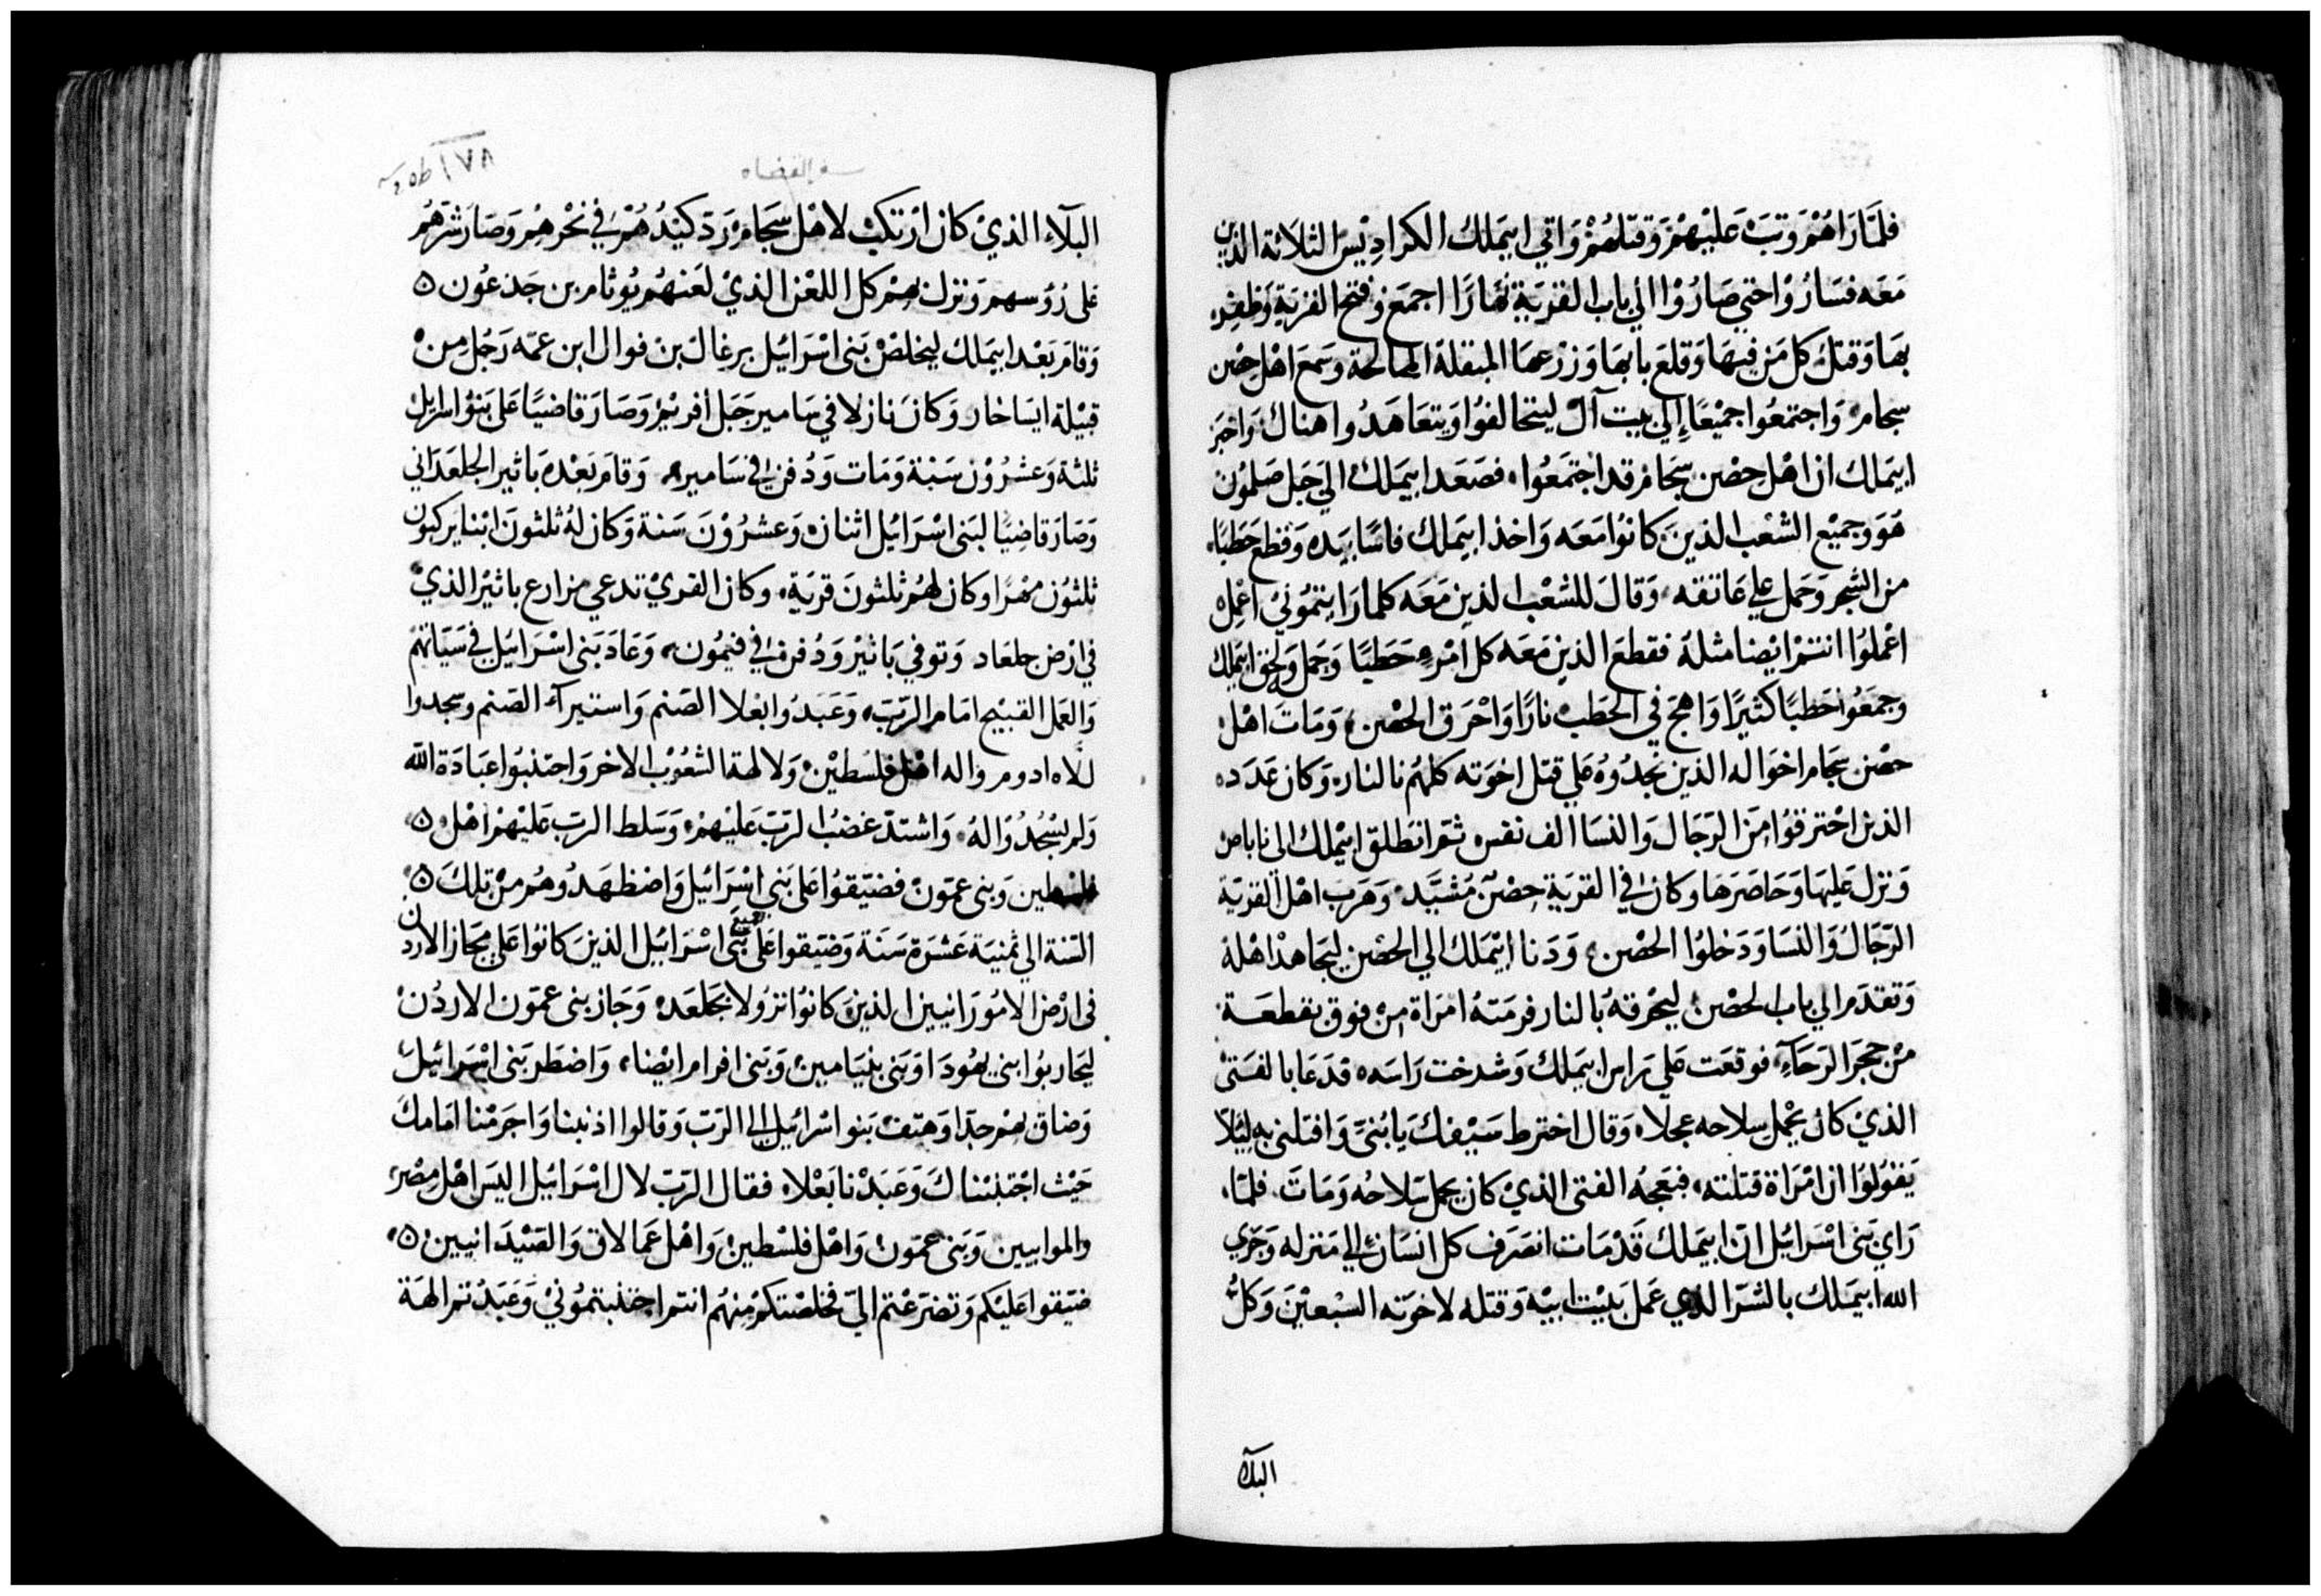 فلمَّا رَاهُمْ وَثبَ عَليْهمْ وَقتلهُمْ وَاتي ابيَملك الكرادِيْسَ الثلاثة الذين
مَعَه فسَارُوْا حتي صَارُوْا الي باب القرْيَةِ نهَارًا اجمعَ وَفتح القرْيَة وَظفِرَ
بهَا وَقتلَ كل مَن فيهَا وَقلعَ بابهَا وَزرْعهَا المبقلة المالحة وسَمعَ اهْل حِصْن
سجام وَاجتمَعُوا جميْعًا إلي بيت آل ليتحالفوُا وَيتعَاهَدُوا هناك وَاخبرَ
ابيَملك ان اهْل حِصْن سجَامْ قد اجْتمَعُوا فصَعَد ابيمَلك الي جَبل صَلمُوْن
هوَ وَجميْع الشعْب الذينَ كانوُا مَعَه وَاخذ ابيَملك فاسًا بيَده وَقطعَ حَطبًا
من الشجر وَحمَل علي عَاتقه وَقالَ للشعْب الذين مَعَه كلما رَايتمُونيْ اعْمل
اعْملوُا انتمْ ايْضا مثلهُ فقطعَ الذين مَعَه كل امْرء حَطبًا وَحَمل وَلحق ابيَملك
وجمَعُوا حَطبًا كثيرًا وَاهجَ في الحَطب نارًا وَاحْرَق الحصْن وَمَاتَ اهْل
حصْن سجام اخوَاله الذين نجدُوهُ علي قتل اخوَته كلهُم بالنار وَكان عَدَده
الذين احْترقوُا منَ الرّجَال وَالنسَا الف نفس ثمّ انطلق ابيْملك الي ناباص
وَنزل عَليهَا وَحَاصَرَهَا وكان في القرْيَة حِصْنٌ مُشيَّد وَهَرَب اهْل القرْيَة
الرّجَالُ وَالنسَا وَدَخلوُا الحصْن وَدَنا ابيْمَلك الي الحصْن ليجَاهدْ اهْله
وَتقدَم الي باب الحصْن ليحْرقهُ بالنار فرمَتهُ امرَاة مِن فوق بقطعَة
مِنْ حجَر الرَحَآءِ فوقعَت علي رَاس ابيَملك وَشدخت رَاسَه فدَعَا بالفتىْ
الذيْ كان يحْمل سِلاحه عجلا وَقال اخترط سَيْفكَ يَابُنيَّ وَاقتلني به ليَلا
يَقوُلوُا ان امْرَاة قتلته فبَعجهُ الفتى الذيْ كان يحمل سَلاحُه وَمَاتَ فلمّا
رَاي بَني اسْرَائيل انّ ابيَملك قدْ مَات انصَرَف كل انسَان الي مَنزله وَجَزي
الله ابيمَلك بالشرّ الذي عَملَ ببَيْت ابيْه وَقتله لاخوَته السَّبْعيْنَ وَكلّ
البلآ
سفر القضاه
١٧٨
البلآء الذيْ كان ارْتكبْ لاهْل سجَام وَرَدّ كيْدُهمْ في نحْرهِمْ وَصَارَ شرّهُم
على رُوُسهم وَنزل بهمْ كل اللعْن الذيْ لعَنهُم يُوثام بن جَدعُون ۵
وَقامَ بَعْد ابيمَلك ليخلصْ بَني اسْرَائيل برغالَ بن فوال ابن عمّه رَجُل مِنْ
قبيْلة ايسَاخار وَكانَ نازلا في سَامير جَبَل افريْم وَصَارَ قاضيًا عَلى بَنوُ اسرايل
ثلثة وَعشرُوْن سَنة وَمَات وَدُفن في سَامير وَقامَ بَعْده يَاثير الجلعَدَاني
وَصَارَ قاضِيًا لبَنى اسْرَائيل اثنان وَعشرُوْنَ سَنة وَكان لهُ ثلثونَ ابْنا يَركبوُن
ثلثوُن مُهْرًا وكان لهُم ثلثونَ قرْيَة وكان القريْ تدعي مزارع ياثيرْ الذيْ
في ارْض جلعَاد وَتوفي يَاثيرْ وَدُفن في فيمُون وَعَادَ بَني اسْرَائيل في سَيّاتهم
وَالعَمل القبيْح امَام الرّبّ وَعَبَدُوا بعْلا الصَنم وَاستيرآ الصَنم وسجدوا
للاه ادوم وَاله اهْل فلسْطيْن وَلالهة الشعُوْب الاخر وَاجتنبُوا عبَادَة الله
وَلم يَسْجدُوْا لهُ وَاشتدّ غضبُ الرّبّ عَليْهمْ وَسَلط الربّ عَليْهمْ اهْل ۵
فلسْطين وَبنى عمّونْ فضيّقوُا عَلى بَني اسْرَائيل وَاضطهَدُوهُم منْ تلكَ ۵
السَّنة الي ثمنيَة عَشرَة سَنَة وَضيّقوا عَلى جميع بَني اسْرَائيل الذينَ كانوُا عَلي مجَاز الاردن
فى ارْض الامُوَرَانيين الذينَ كانوُا نزُولا بجَلعَد وَجَاز بني عمّون الاردُن
ليَحاربوُا بني يهُودَا وَبَني بنيَامين وَبَني افرام ايْضا وَاضطرّ بَني اسْرائيل
وَضاق بهمْ جدّا وَهتفْ بَنو اسْرَائيل الي الرّبّ وَقالوا اذنبنا وَاجرَمْنا امَامك
حَيْث اجْتنبْناكَ وَعَبَدْنا بَعْلا فقال الرّبّ لال اسْرَائيل اليَس اهْل مِصْر
والموابيين وَبَني عمّون وَاهْل فلسْطين وَاهْل عَمَالاق وَالصَّيْدَانيين ۵
ضيّقوا عَليْكم وَتضرّعْتم اليّ فخلصْتكمْ منهُم انتم اجتنبتمُونيْ وَعَبَدْتم الهَة